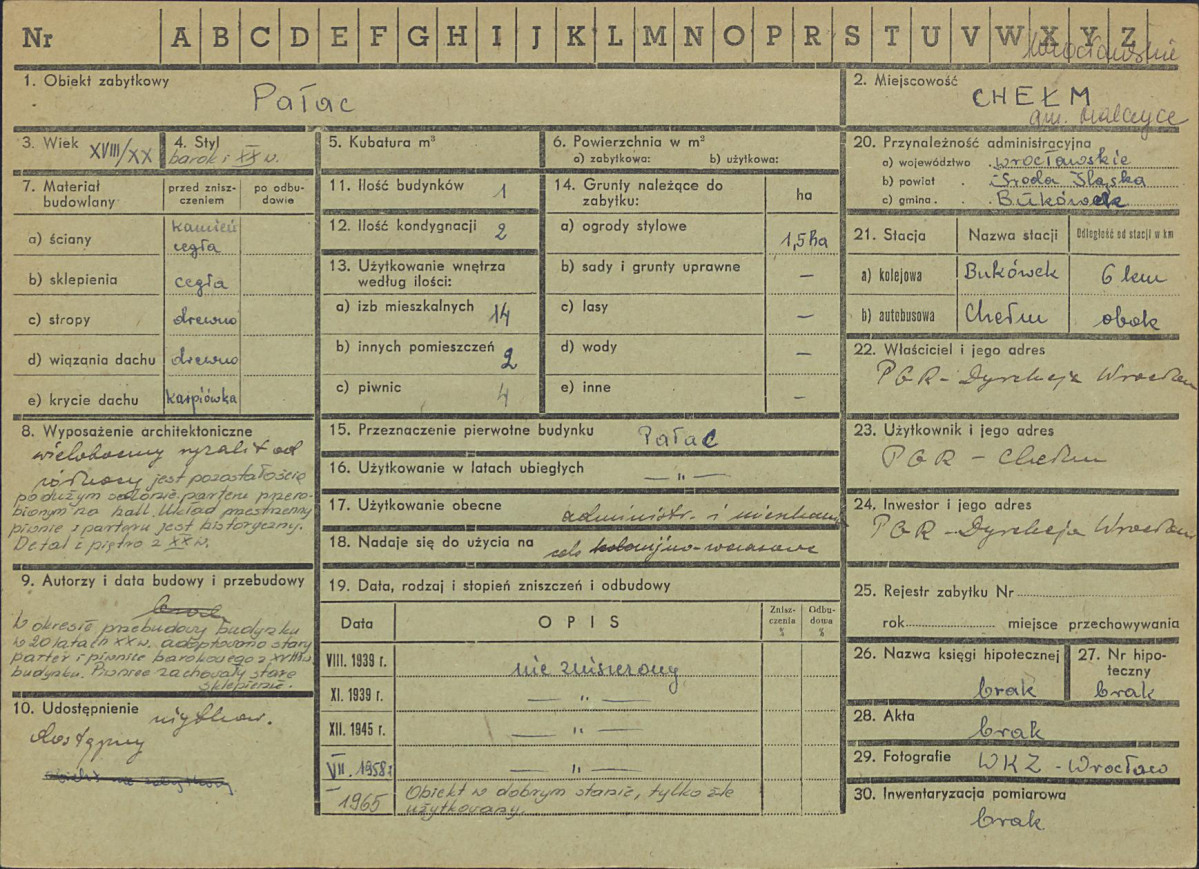 Nr A B C D E F G H I J K L M N O P R S T U V W X Y Z
wrocławskie
1. Obiekt zabytkowy
Pałac
2. Miejscowość
CHEŁM
gm. Malczyce
3. Wiek XVIII/XX
4. Styl
barok i XX w.
5. Kubatura m³
6. Powierzchnia w m²
a) zabytkowa: b) użytkowa:
7. Materiał budowlany
przed znisz-
czeniem
po odbu-
dowie
a) ściany kamień
cegła
b) sklepienia cegła
c) stropy drewno
d) wiązania dachu drewno
e) krycie dachu karpiówka
8. Wyposażenie architektoniczne
wieloboczny ryzalit od
jest pozostałością
po dużym parteru przero-
bionym na hall. Układ przestrzenny
piwnic i parteru jest historyczny.
Detal i piętro z XX w.
9. Autorzy i data budowy i przebudowy
W okresie przebudowy budynku
w 20 latach XX w. adaptowano stary
parter i piwnice barokowego z XVIII w.
budynku. Piwnice zachowały stare
sklepienie.
10. Udostępnienie
użytkow.
dostępny
11. Ilość budynków 1
12. Ilość kondygnacji 2
13. Użytkowanie wnętrza
według ilości:
a) izb mieszkalnych 14
b) innych pomieszczeń 2
c) piwnic 4
14. Grunty należące do
zabytku:
ha
a) ogrody stylowe 1,5 ha
b) sady i grunty uprawne –
c) lasy –
d) wody –
e) inne –
15. Przeznaczenie pierwotne budynku Pałac
16. Użytkowanie w latach ubiegłych — " —
17. Użytkowanie obecne administr. i mieszkaln
18. Nadaje się do użycia na cele kolonijno-wczasowe
19. Data, rodzaj i stopień zniszczeń i odbudowy
Data
OPIS
Znisz-
czenia
%
Odbu-
dowa
%
VIII. 1939 r. nie zniszczony
XI. 1939 r. — " —
XII. 1945 r. — " —
VII. 1958 r — " —
1965 Obiekt w dobrym stanie, tylko źle
użytkowany.
20. Przynależność administracyjna
a) województwo wrocławskie
b) powiat Środa Śląska
c) gmina Bukówek
21. Stacja
Nazwa stacji
Odległość od stacji w km
a) kolejowa Bukówek 6 km
b) autobusowa Chełm obok
22. Właściciel i jego adres
PGR - Dyrekcja Wrocław
23. Użytkownik i jego adres
PGR - Chełm
24. Inwestor i jego adres
PGR - Dyrekcja Wrocław
25. Rejestr zabytku Nr
rok miejsce przechowywania
26. Nazwa księgi hipotecznej
brak
27. Nr hipo-
teczny
brak
28. Akta
brak
29. Fotografie WKZ - Wrocław
30. Inwentaryzacja pomiarowa
brak